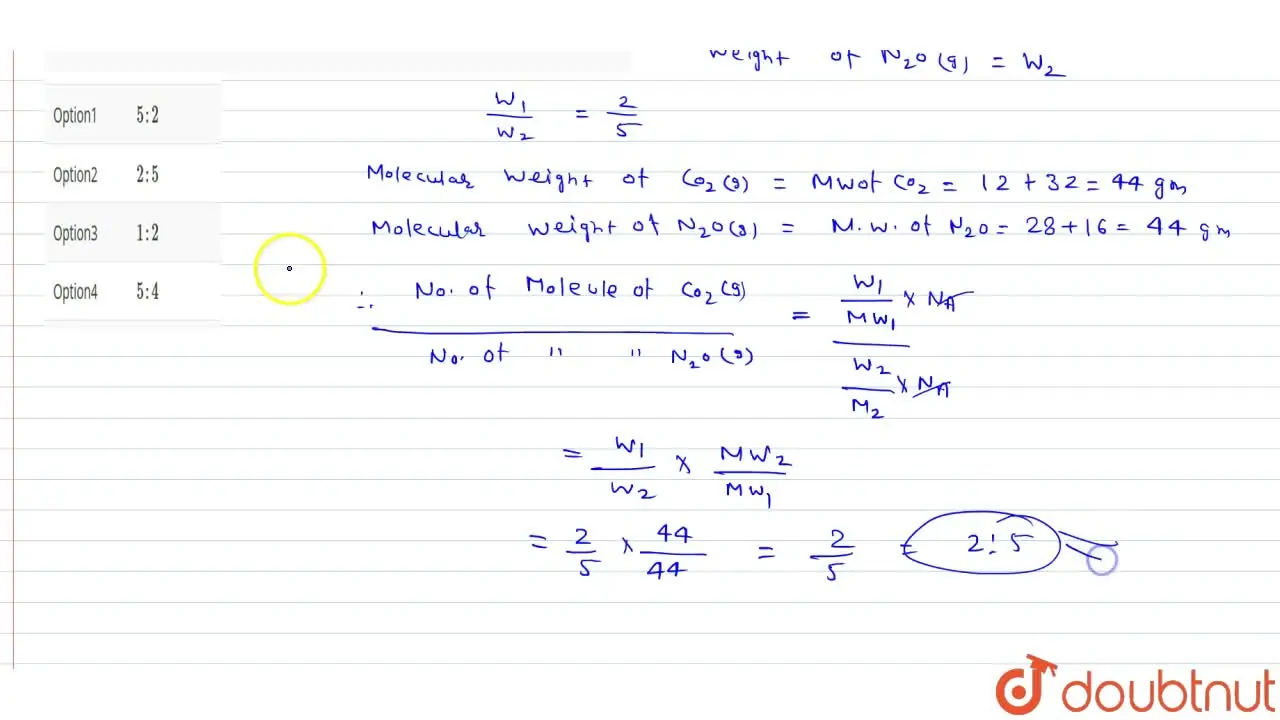 Weight of N₂O (g) = W₂
W₁/W₂ = 2/5
Option1 5:2
Option2 2:5
Option3 1:2
Option4 5:4
Molecular Weight of CO₂(g) = MWof CO₂ = 12 + 32 = 44 gm
Molecular weight of N₂O(g) = M.W. of N₂O = 28 + 16 = 44 gm
∴ No. of Molecule of CO₂(g) / No. of " " N₂O(g) = (W₁/MW₁ × N_A) / (W₂/M₂ × N_A)
= W₁/W₂ × MW₂/MW₁
= 2/5 × 44/44 = 2/5 = 2:5
doubtnut